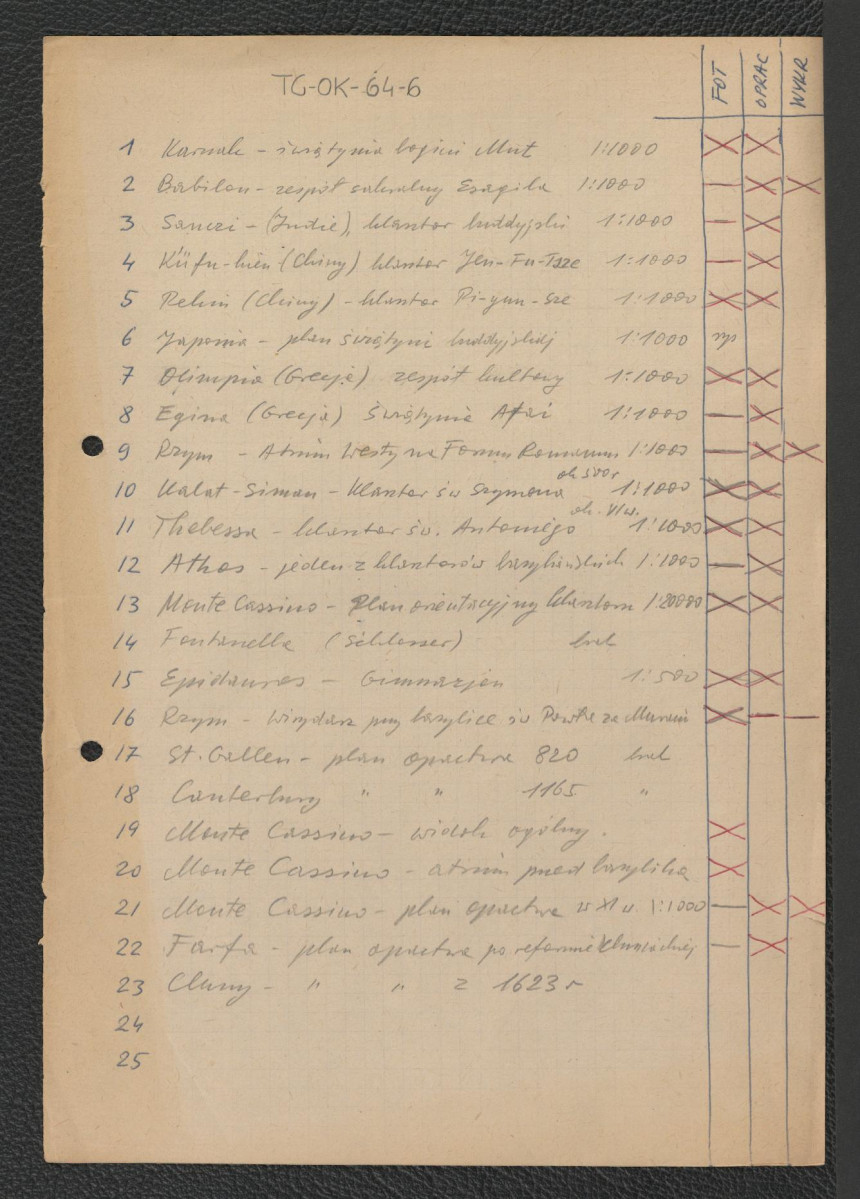 TG-OK-64-6
FOT OPRAC WYKR
1 Karnak - świątynia bogini Mut 1:1000
2 Babilon - zespół sakralny Esagila 1:1000
3 Sanczi - (Indie), klasztor buddyjski 1:1000
4 K'üfu-hien (Chiny) klasztor Yen-Fu-Tsze 1:1000
5 Pekin (Chiny) - klasztor Pi-yun-sze 1:1000
6 Japonia - plan świątyni buddyjskiej 1:1000
7 Olimpia (Grecja) zespół kultowy 1:1000
8 Egina (Grecja) Świątynia Afai 1:1000
9 Rzym - Atrium Westy na Forum Romanum 1:1000
10 Kalat-Siman - Klasztor św Szymona 1:1000
11 Thebessa - klasztor św. Antoniego ok. VI w. 1:1000
12 Athos - jeden z klasztorów bazyliańskich 1:1000
13 Monte Cassino - Plan orientacyjny klasztoru 1:20000
14 Fontanella (Schlosser) brak
15 Epidauros - Gimnazjon 1:500
16 Rzym - wirydarz przy bazylice św Pawła za Murami
17 St. Gallen - plan opactwa 820 brak
18 Canterbury " " 1165 "
19 Monte Cassino - widok ogólny.
20 Monte Cassino - atrium przed bazyliką
21 Monte Cassino - plan opactwa w XI w. 1:1000
22 Farfa - plan opactwa po reformie kluniackiej
23 Cluny - " " z 1623 r
24
25